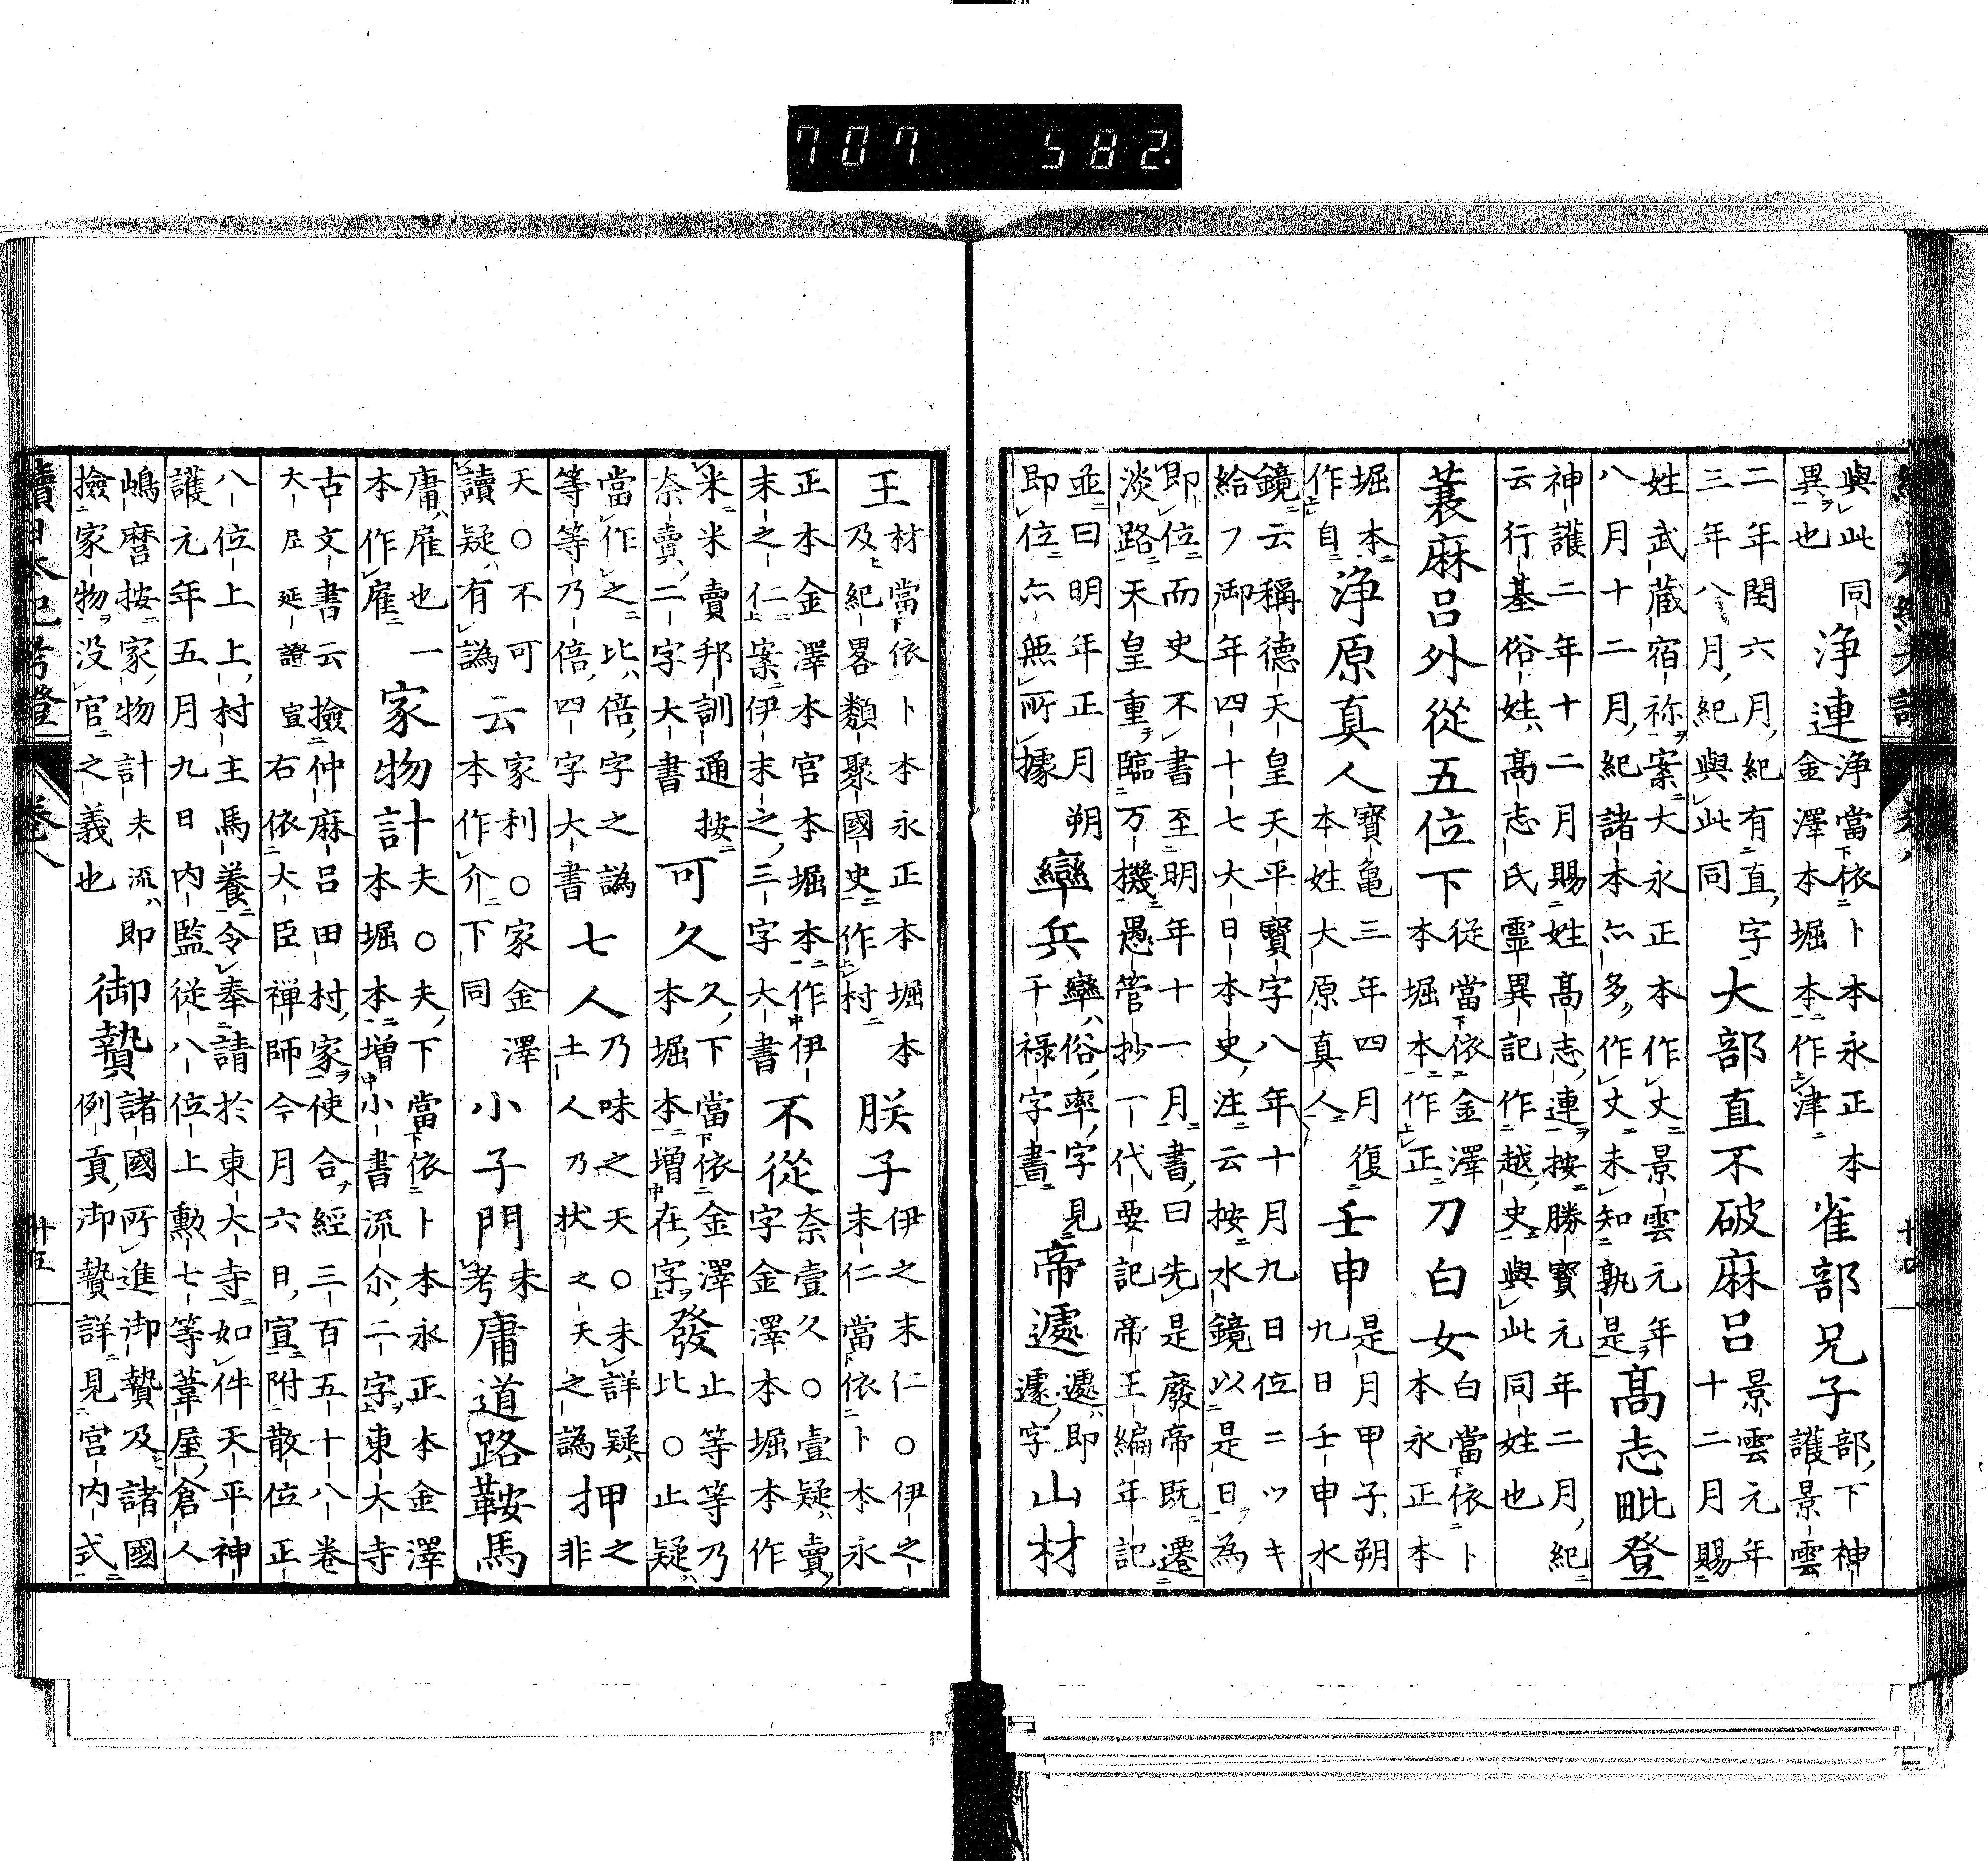 707 582.
與此同
異也
浄連
浄當依卜本永正本
金澤本堀本作津
雀部兄子
部下神
護景雲
二年閏六月紀有直字
三年八月紀與此同
大部直不破麻呂
景雲元年
十二月賜
姓武蔵宿祢案大永正本作丈景雲元年
八月十二月紀諸本亦多作丈未知孰是
髙志毗登
神護二年十二月賜姓髙志連按勝寳元年二月紀
云行基俗姓髙志氏霊異記作越史與此同姓也
蓑麻呂外從五位下
從當依金澤
本堀本作正
刀白女
白當依卜
本永正本
堀本
作自
浄原真人
寳亀三年四月復
本姓大原真人
壬申
是月甲子朔
九日壬申水
鏡云稱德天皇天平寳字八年十月九日位ニツキ
給フ御年四十七大日本史注云按水鏡以是日為
即位而史不書至明年十一月書曰先是廢帝既遷
淡路天皇重臨万機愚管抄一代要記帝王編年記
並曰明年正月朔
即位亦無所據
兵
俗率字見
干禄字書
帝遽
遽即
遽字
山材
王
材當依卜本永正本堀本
及紀畧類聚國史作村
朕子
伊之末仁○伊之
末仁當依卜本永
正本金澤本官本堀本作伊
末之仁案伊末之三字大書
不從
奈壹久○壹疑賣
字金澤本堀本作
米米賣邦訓通按
奈賣二字大書
可久
久下當依金澤
本堀本増在字
發
止等等乃
比○止疑
當作之比倍字之譌
等等乃倍四字大書
七人
乃味之天○未詳疑
土人乃状之天之譌
押
之
非
天○不可
讀疑有譌
云
家利○家金澤
本作介下同
小子門
未
考
庸道路鞍馬
庸雇也一
本作雇
家物計
夫○夫下當依卜本永正本金澤
本堀本増小書流尒二字東大寺
古文書云撿仲麻呂田村家使合經三百五十八巻
大延證宣右依大臣禅師今月六日宣附散位正
八位上上村主馬養令奉請於東大寺如件天平神
護元年五月九日内監從八位上勳七等葦屋倉人
嶋麿按家物計未流即
撿家物没官之義也
御贄
諸國所進御贄及諸國
例貢御贄詳見宮内式
續日本紀考證 卷八 卅五